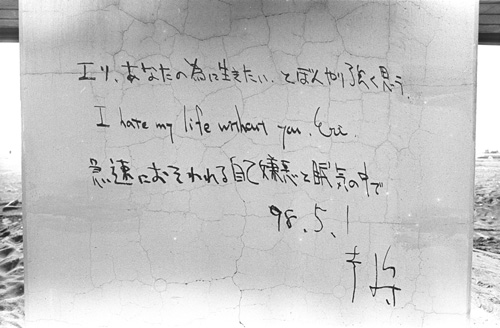 エリ、あなたの為に生きたい、とぼんやり強く思う.
I hate my life without you. Eri.
急速におそわれる自己嫌悪と眠気の中で
98.5.1